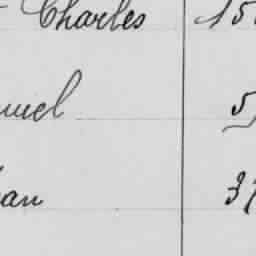 Charles 15
uel 5
an 37